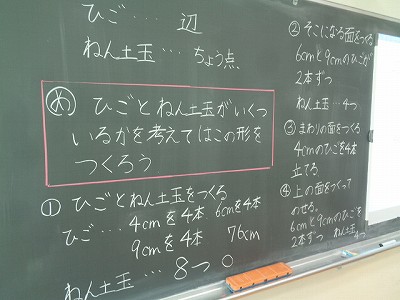 ひご… 辺
ねん土玉… ちょう点
め ひごとねん土玉がいくつ
いるかを考えてはこの形を
つくろう
① ひごとねん土玉をつくる
ひご… 4cmを4本 6cmを4本
9cmを4本 76cm
ねん土玉… 8つ ○
② そこになる面をつくる
6cmと9cmのひごが
2本ずつ
ねん土玉…4つ
③ まわりの面をつくる
4cmのひごを4本
立てる
④ 上の面をつくって
のせる。
6cmと9cmのひごを
2本ずつ ねん土玉4つ